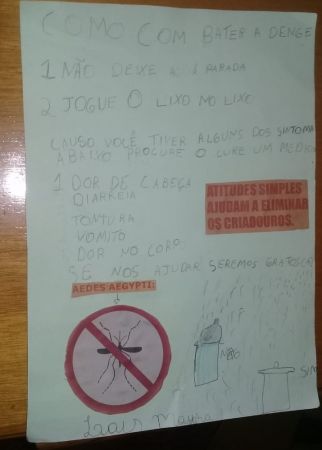 COMO COM BATER A DENGE
1 NÃO DEIXE A PARADA
2 JOGUE O LIXO NO LIXO
CAUSO VOCÊ TIVER ALGUNS DOS SINTOMA
ABAIXO PROCURE O UM MEDICO
1 DOR DE CABEÇA
DIARREIA
TONTURA
VOMITO
DOR NO CORPO
ATITUDES SIMPLES
AJUDAM A ELIMINAR
OS CRIADOUROS.
SE NOS AJUDAR SEREMOS GRATOS
AEDES AEGYPTI:
NÃO
SIM